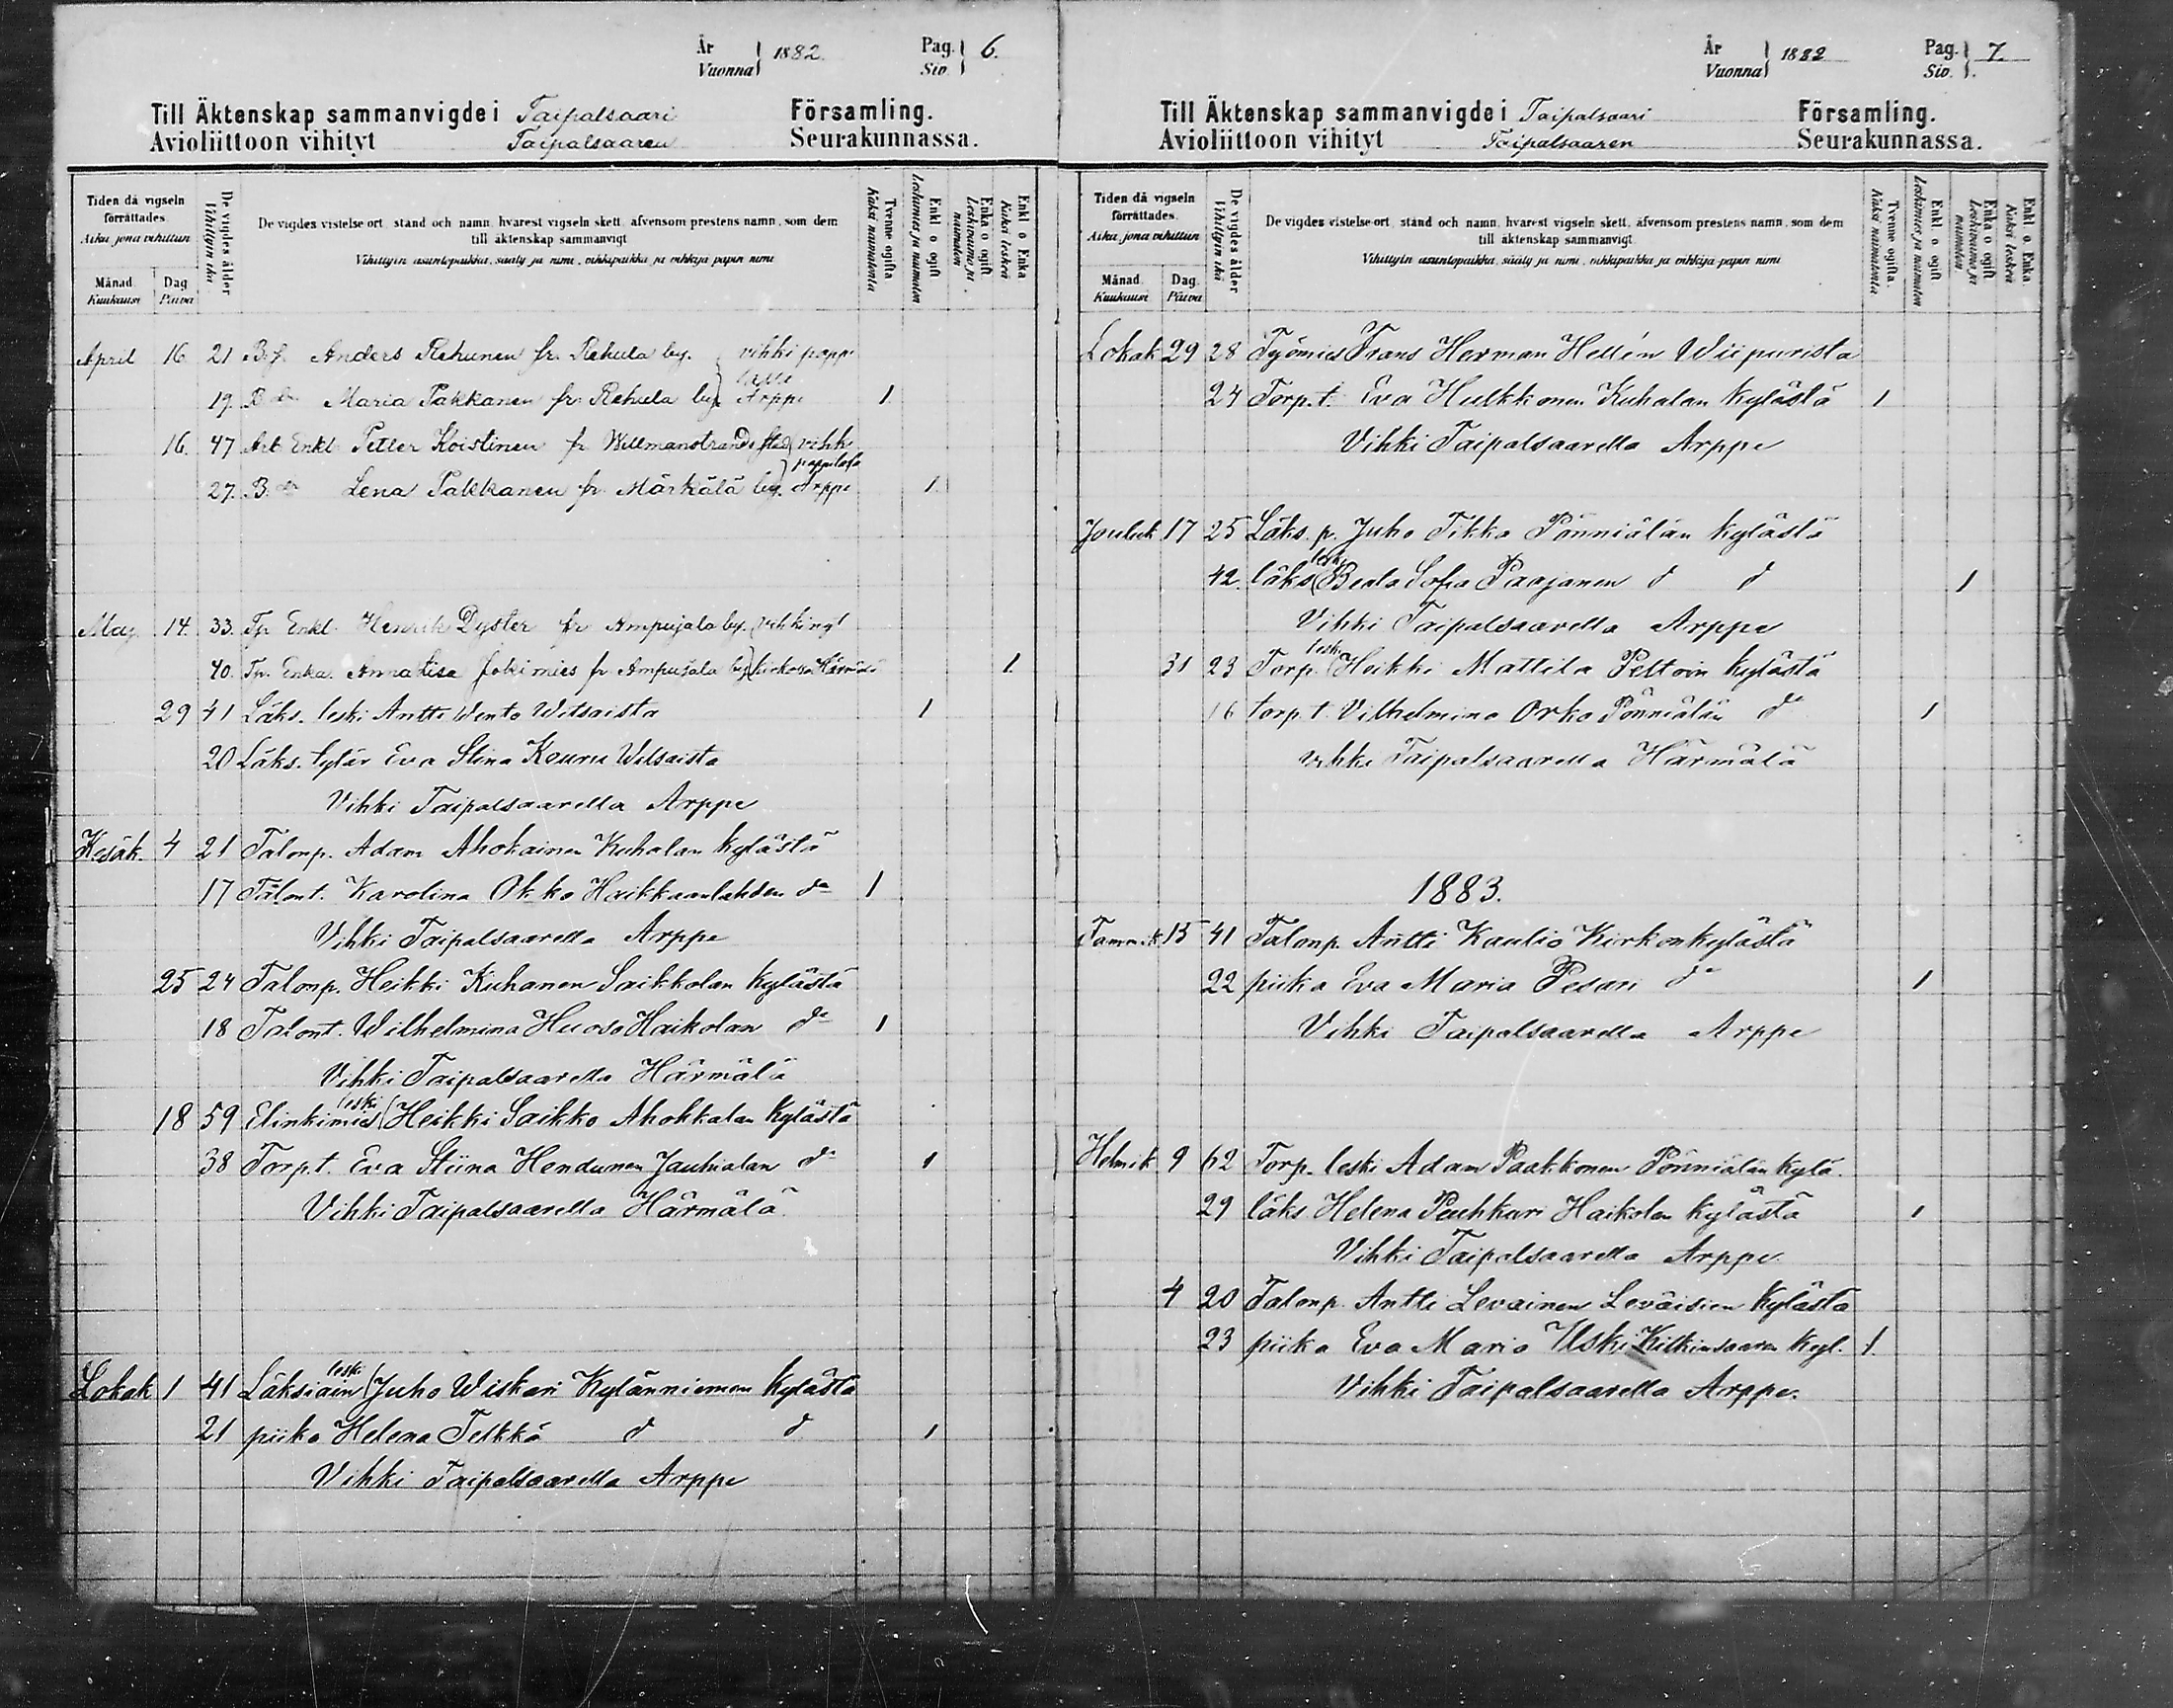 År 1882. Pag. 6.
Vuonna Siv.
Till Äktenskap sammanvigde i Taipalsaari Församling.
Avioliittoon vihityt Taipalsaaren Seurakunnassa.
Tiden då vigseln förrättades.
Aika, jona vihittiin
Månad. Kuukausi
Dag. Päivä
De vigdes ålder
Vihittyin ikä
De vigdes vistelse ort, stånd och namn, hvarest vigseln skett, äfvensom prestens namn, som dem
till äktenskap sammanvigt
Vihittyin asuntopaikka, sääty ja nimi, vihkipaikka ja vihkijä papin nimi
Tvenne ogifta.
Kaksi naimatonta
Enkl. o ogift
Leskimies ja naimaton
Enka o ogift
Leskivaimo ja naimaton
Enkl o Enka
Kaksi leskeä
April 16. 21 B.f. Anders Rehunen fr. Rehula by. vihki pappi
19. B dr Maria Pakkanen fr. Rehula by. Arppe 1
16. 47 Arb Enkl. Petter Koistinen fr. Willmanstrands stad vihki
pappilassa
27. B. dr Lena Pakkanen fr. Märkälä by. Arppe 1
May. 14. 33. Tp Enkl. Henrik Dyster fr Ampujala by.
40. Tp. Enka. Anna Lisa Jokimies fr Ampujala by kirkossa Härmälä 1.
29 41 Läks. leski Antti Wento Witsaista 1
20 Läks. tytär Eva Stina Kauru Witsaista
Vihki Taipalsaarella Arppe
Kesäk. 4 21 Talonp. Adam Ahokainen Kuhalan kylästä
17 Talont. Karolina Okko Haikkaanlahden do 1
Vihki Taipalsaarella Arppe
25 24 Talonp. Heikki Kuhanen Saikkolan kylästä
18 Talont. Wilhelmina Huoso Haikolan do 1
Vihki Taipalsaarella Härmälä
leski
18 59 Elinkimies Heikki Saikko Ahokkalan kylästä
38 Torp.t. Eva Stiina Hendunen Jauhialan do 1
Vihki Taipalsaarella Härmälä
leski
Lokak 1 41 Läksiäin Juho Wiskari Kylänniemen kylästä
21 piika Helena Telkkä d d 1
Vihki Taipalsaarella Arppe
År 1882 Pag. 7.
Vuonna Siv.
Till Äktenskap sammanvigde i Taipalsaari Församling.
Avioliittoon vihityt Taipalsaaren Seurakunnassa.
Tiden då vigseln förrättades.
Aika, jona vihittiin
Månad. Kuukausi
Dag. Päivä
De vigdes ålder
Vihittyin ikä
De vigdes vistelse ort, stånd och namn, hvarest vigseln skett, äfvensom prestens namn, som dem
till äktenskap sammanvigt
Vihittyin asuntopaikka, sääty ja nimi, vihkipaikka ja vihkijä papin nimi
Tvenne ogifta.
Kaksi naimatonta
Enkl o ogift
Leskimies ja naimaton
Enka o ogift
Leskivaimo ja naimaton
Enkl. o. Enka.
Kaksi leskeä
Lokak 29 28 Työmies Frans Herman Hellén Wiipurista
24 Torp.t. Eva Hulkkonen Kuhalan kylästä 1
Vihki Taipalsaarella Arppe
Jouluk 17 25 Läks. p. Juho Tikka Pönniälän kylästä
leski
42. läks Beata Sofia Paajanen d d 1
Vihki Taipalsaarella Arppe
leski
31 23 Torp. Heikki Mattila Peltoin kylästä
16 torp.t. Vilhelmina Orko Pönniälän do 1
vihki Taipalsaarella Härmälä
1883.
Tammik. 15 41 Talonp. Antti Kaulio Kirkonkylästä
22 piika Eva Maria Pesari do 1
Vihki Taipalsaarella Arppe
Helmik 9 62 Torp. leski Adam Paakkonen Pönniälän kylä.
29 läks Helena Puhkuri Haikolan kylästä 1
Vihki Taipalsaarella Arppe.
4 20 Talonp. Antti Levainen Leväisien kylästä
23 piika Eva Maria Uski Kilkinsaaren kyl. 1.
Vihki Taipalsaarella Arppe.